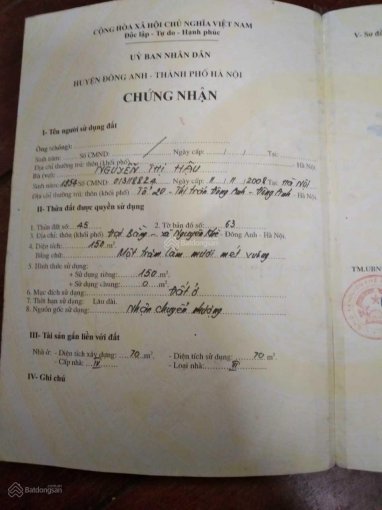 CỘNG HÒA XÃ HỘI CHỦ NGHĨA VIỆT NAM
Độc lập - Tự do - Hạnh phúc
UỶ BAN NHÂN DÂN
HUYỆN ĐÔNG ANH - THÀNH PHỐ HÀ NỘI
CHỨNG NHẬN
I- Tên người sử dụng đất
Ông (chồng):
Sinh năm: Số CMND: Ngày cấp: Tại:
Địa chỉ thường trú: thôn (khối phố) - Hà Nội
Bà (vợ): NGUYỄN THỊ HẬU
Sinh năm: Số CMND: Ngày cấp: 11/11/2008 Tại: HÀ NỘI
Địa chỉ thường trú: thôn (khối phố) Tổ 20 - Thị trấn Đông Anh - Đông Anh - Hà Nội.
II- Thửa đất được quyền sử dụng
1. Thửa đất số: 45 2. Tờ bản đồ số: 63
3. Địa chỉ: thôn (khối phố) - xã Nguyên Khê Đông Anh - Hà Nội.
4. Diện tích: 150 m².
Bằng chữ: Một trăm lăm mươi mét vuông
5. Hình thức sử dụng:
+ Sử dụng riêng: 150 m².
+ Sử dụng chung: 0 m².
6. Mục đích sử dụng: Đất ở
7. Thời hạn sử dụng: Lâu dài.
8. Nguồn gốc sử dụng: Nhận chuyển nhượng
III- Tài sản gắn liền với đất
Nhà ở: - Diện tích xây dựng: 70 m². - Diện tích sử dụng: 70 m².
- Cấp nhà: IV - Loại nhà:
IV- Ghi chú
V- Sơ đồ
TM.UBN
Batdongsan
Batdongsan